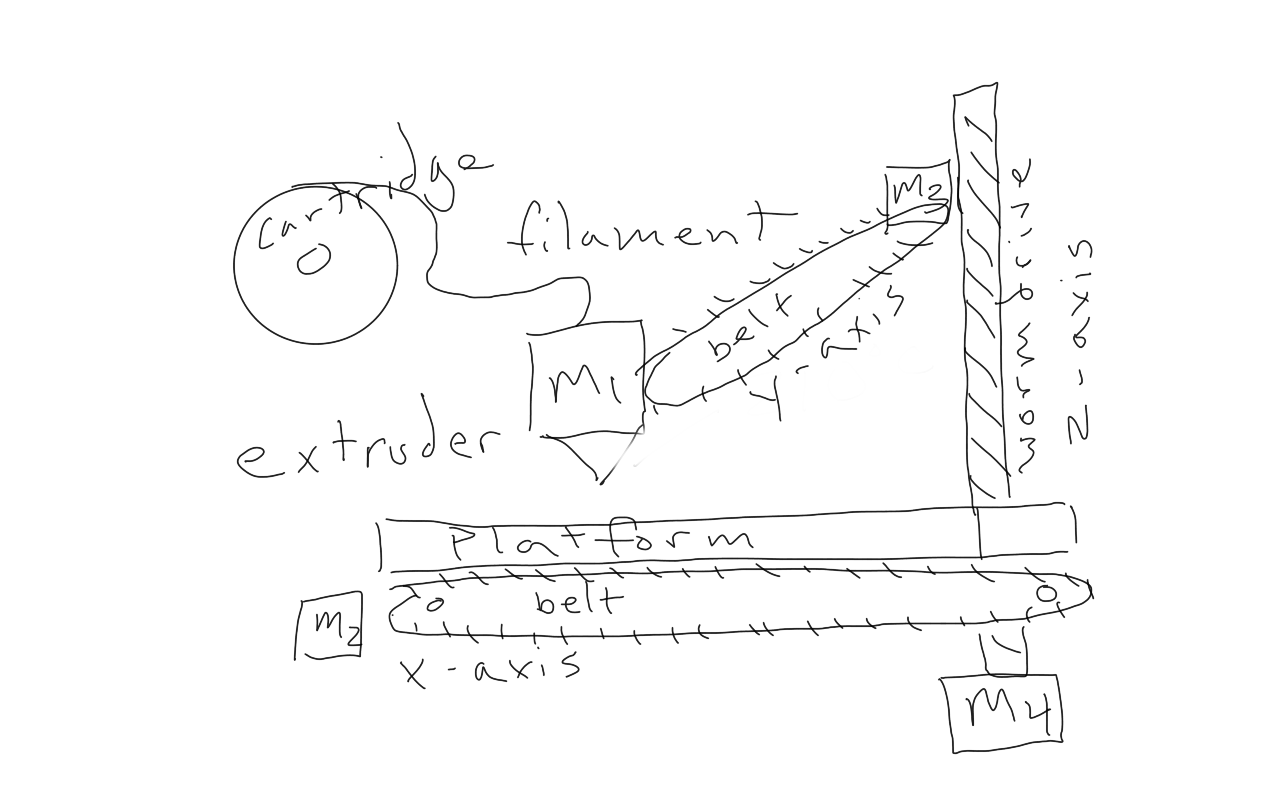 cartridge
filament
M3
belt
y-axis
worm drive
z-axis
M1
extruder
Platform
belt
M2
x-axis
M4